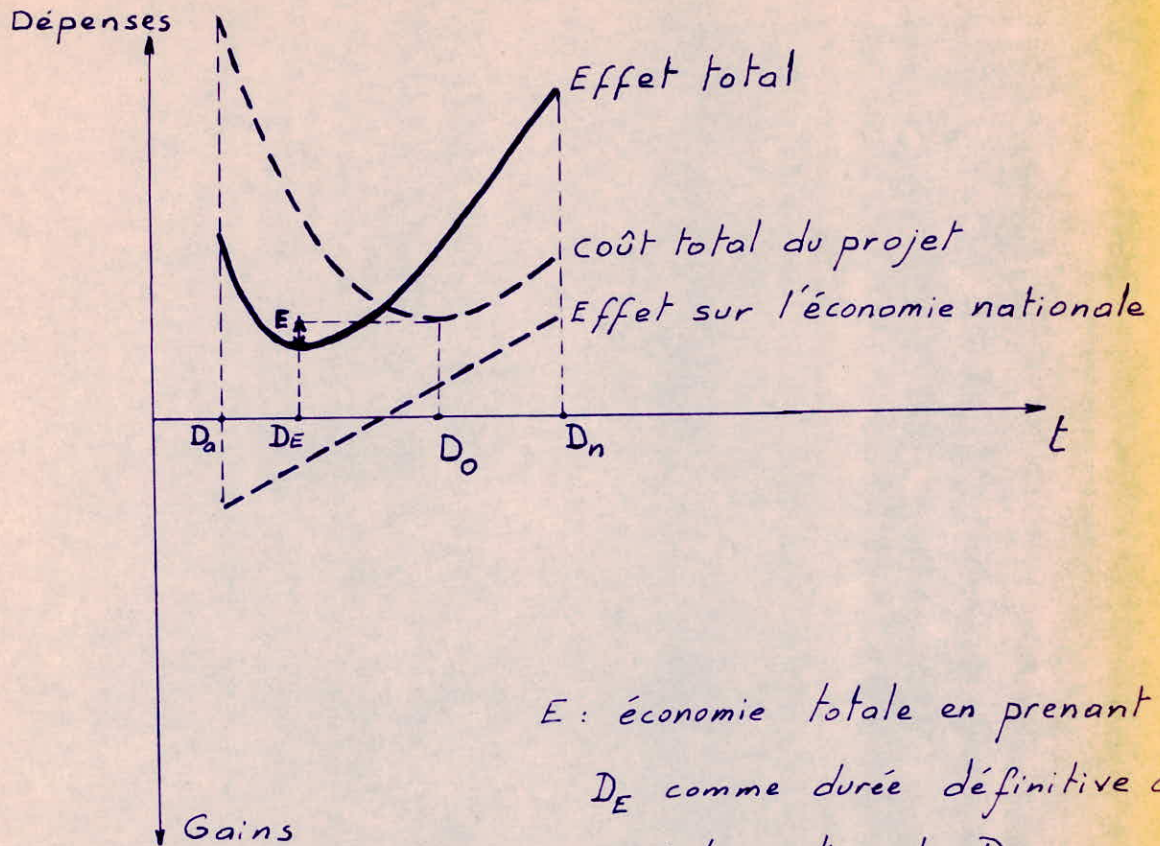 Dépenses
Effet total
coût total du projet
E
Effet sur l'économie nationale
Da DE Do Dn t
E : économie totale en prenant
DE comme durée définitive
Gains